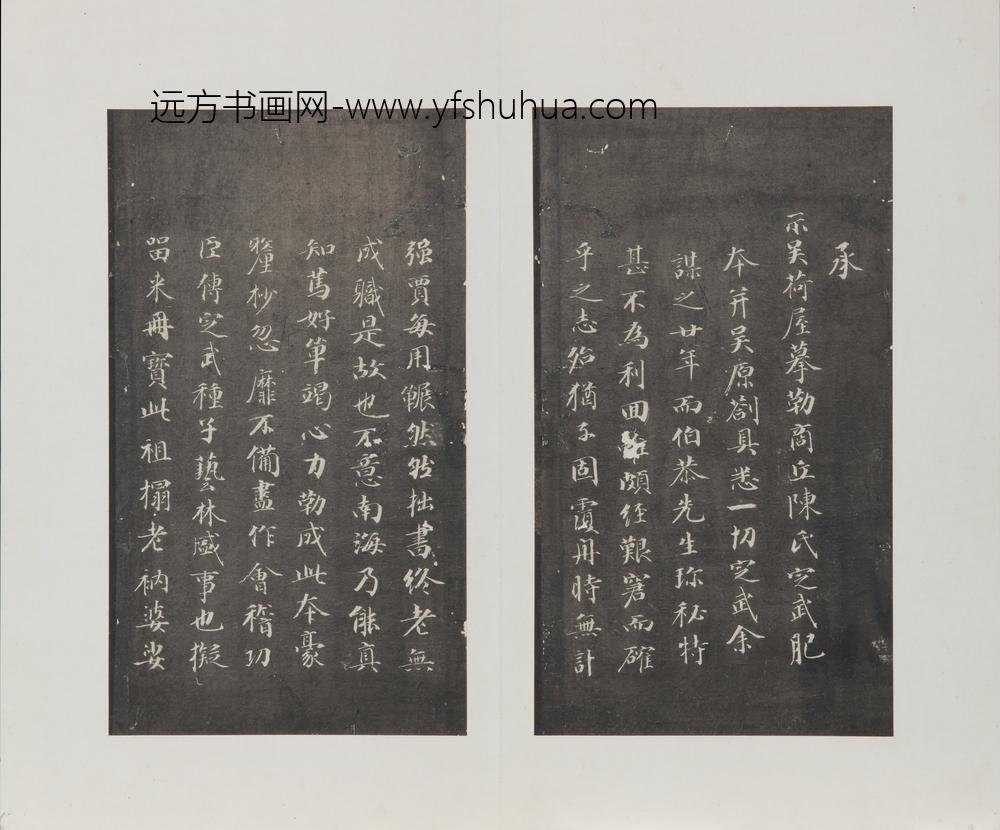 远方书画网-www.yfshuhua.com
承
示吴荷屋摹勒商丘陳氏定武肥
本并吴原劄具悉一切定武余
謀之廿年而伯恭先生珎秘特
甚不為利回雖頗经艱窘而確
乎之志殆猶子固覆舟時無計
强賈每用冁然然拙書终老無
成職是故也不意南海乃能真
知篤好單竭心力勒成此本豪
釐杪忽靡不備盡作會稽功
臣傳定武種子藝林盛事也擬
留来冊寳此祖搨老衲婆娑